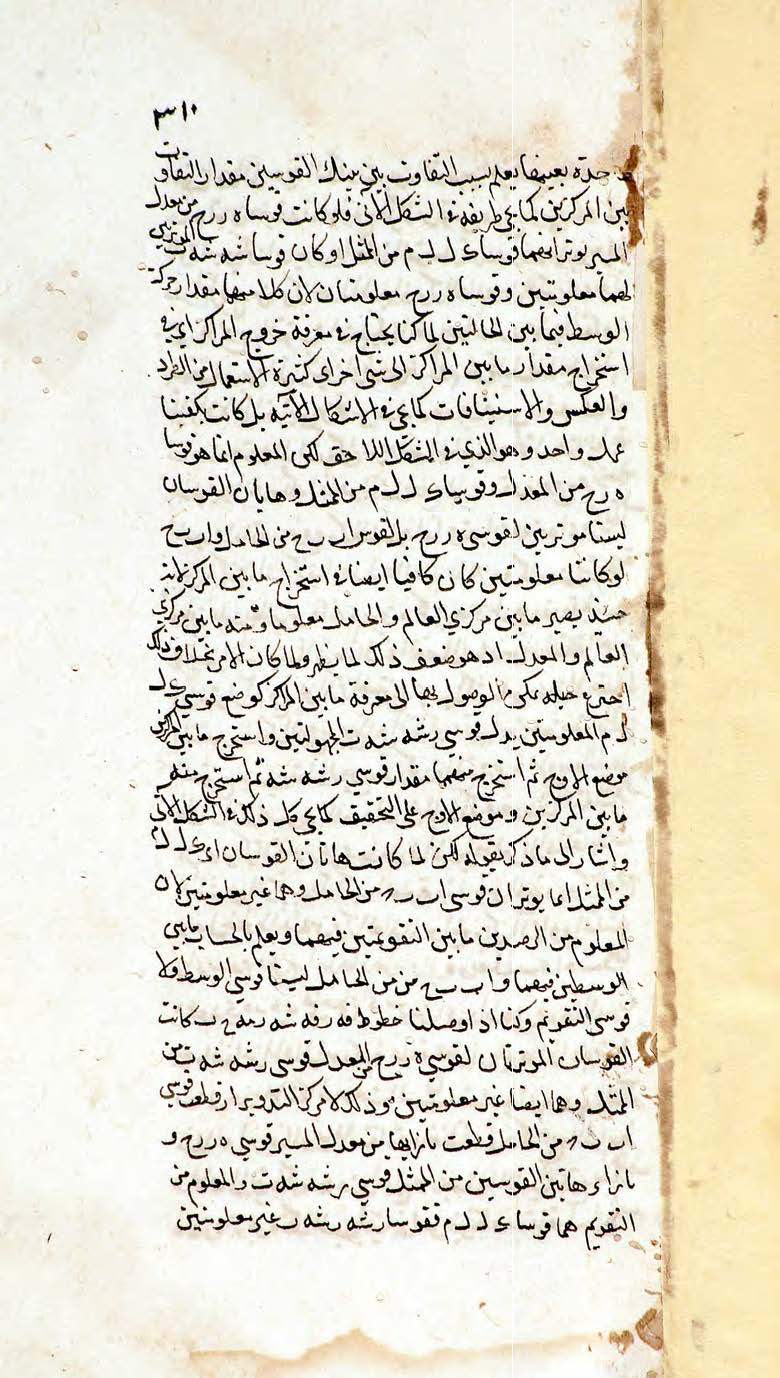 ٣١٠
حدة بعينها يعلم بسبب التفاوت بين تينك القوسين مقدار التفاوت
بين المركزين كما يجئ طريقه في الشكل الآتي فلو كانت قوسا ه ر رح من معدل
المسير يوترانهما قوسا ء ل ل م من الممثل او كان قوسا شه شه ت الموترتين
لهما معلومتين وقوسا ه ر رح معلومتان لان كلا منهما مقدار حركة
الوسط فيما بين الحالتين لما كنا يحتاج في معرفة خروج المراكز اي في
استخراج مقدار ما بين المراكز الى شئ اخر اي كثيرة الاستعمال من الطرد
والعكس والاستينافات كما يجئ في الاشكال الآتية بل كانت يكفينا
عمل واحد وهو الذي في الشكل اللاحق لكن المعلوم انما هو قوسا
ه ر ح من المعدل وقوسا ء ل ل م من الممثل وهاتان القوسان
ليستا موترتين لقوسي ه ر رح بل لقوس ا ب ب ح من الحامل و ا ب ب ح
لو كانتا معلومتين كان كافيا ايضا في استخراج ما بين المركز لانه
حينئذ يصير ما بين مركزي العالم والحامل معلوما ومنه ما بين مركزي
العالم والمعدل اذ هو ضعف ذلك لما يظهر ولما كان الامر بخلاف ذلك
اخترع حيلة يمكن الوصول بها الى معرفة ما بين المراكز كوضع قوسي ء ل
ل م المعلومتين بدل قوسي رشه شه ت المجهولتين واستخرج ما بين المركزين
موضع الاوج ثم استخرج منهما مقدار قوسي رشه شه ثم استخرج منه
ما بين المركزين وموضع الاوج على التحقيق كما يجئ كل ذلك في الشكل الآتي
واشار الى ما ذكر بقوله لكن لما كانت هاتان القوسان اي ء ل ل م
من الممثل انما يوتران قوسي ا ب ب ح من الحامل وهما غير معلومتين لان
المعلوم من الرصدين ما بين التقويمين فيهما ويعلم بالحساب ما بين
الوسطين فيهما و ا ب ب ح من من الحامل ليستا قوسي الوسط ولا
قوسي التقويم وكنا اذا وصلنا خطوط كانت
القوسان الموترتان لقوسي ه ر رح من المعدل قوسي رشه شه ت من
الممثل وهما ايضا غير معلومتين وذلك لا مركز التدوير اذ قطع قوسي
ا ب ب ح من الحامل قطعت بازايها من معدل المسير قوسي ه ر رح و
بازاء هاتين القوسين من الممثل قوسي رشه شه ت والمعلوم من
التقديم هما قوسا ء ل ل م فقوسا رشه رشه ت غير معلومتين